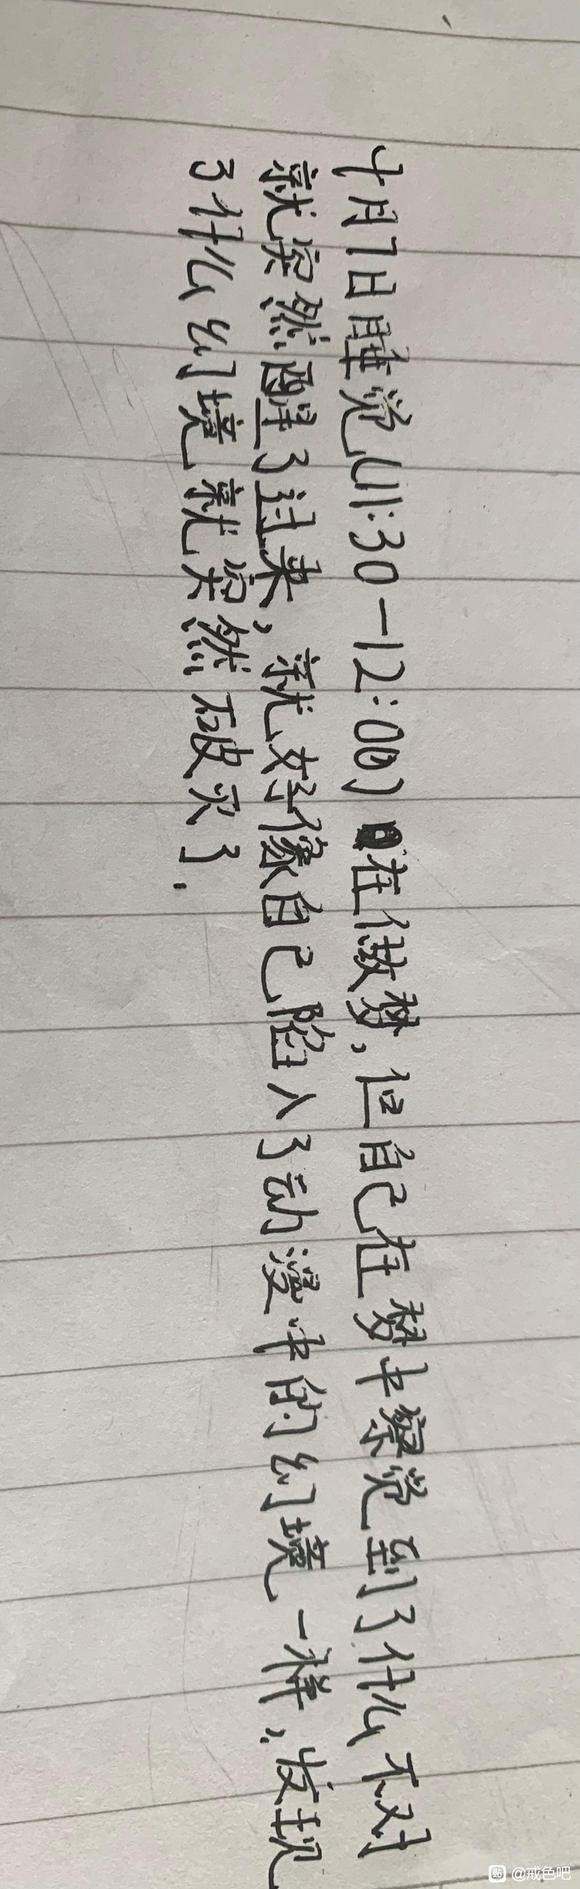 十月1日睡觉(11:30-12:00)在做梦,但自己在梦中察觉到了什么不对
就突然醒了过来,就好像自己陷入了动漫中的幻境一样,发现
了什么幻境就突然破灭了.
贴 @戒色吧